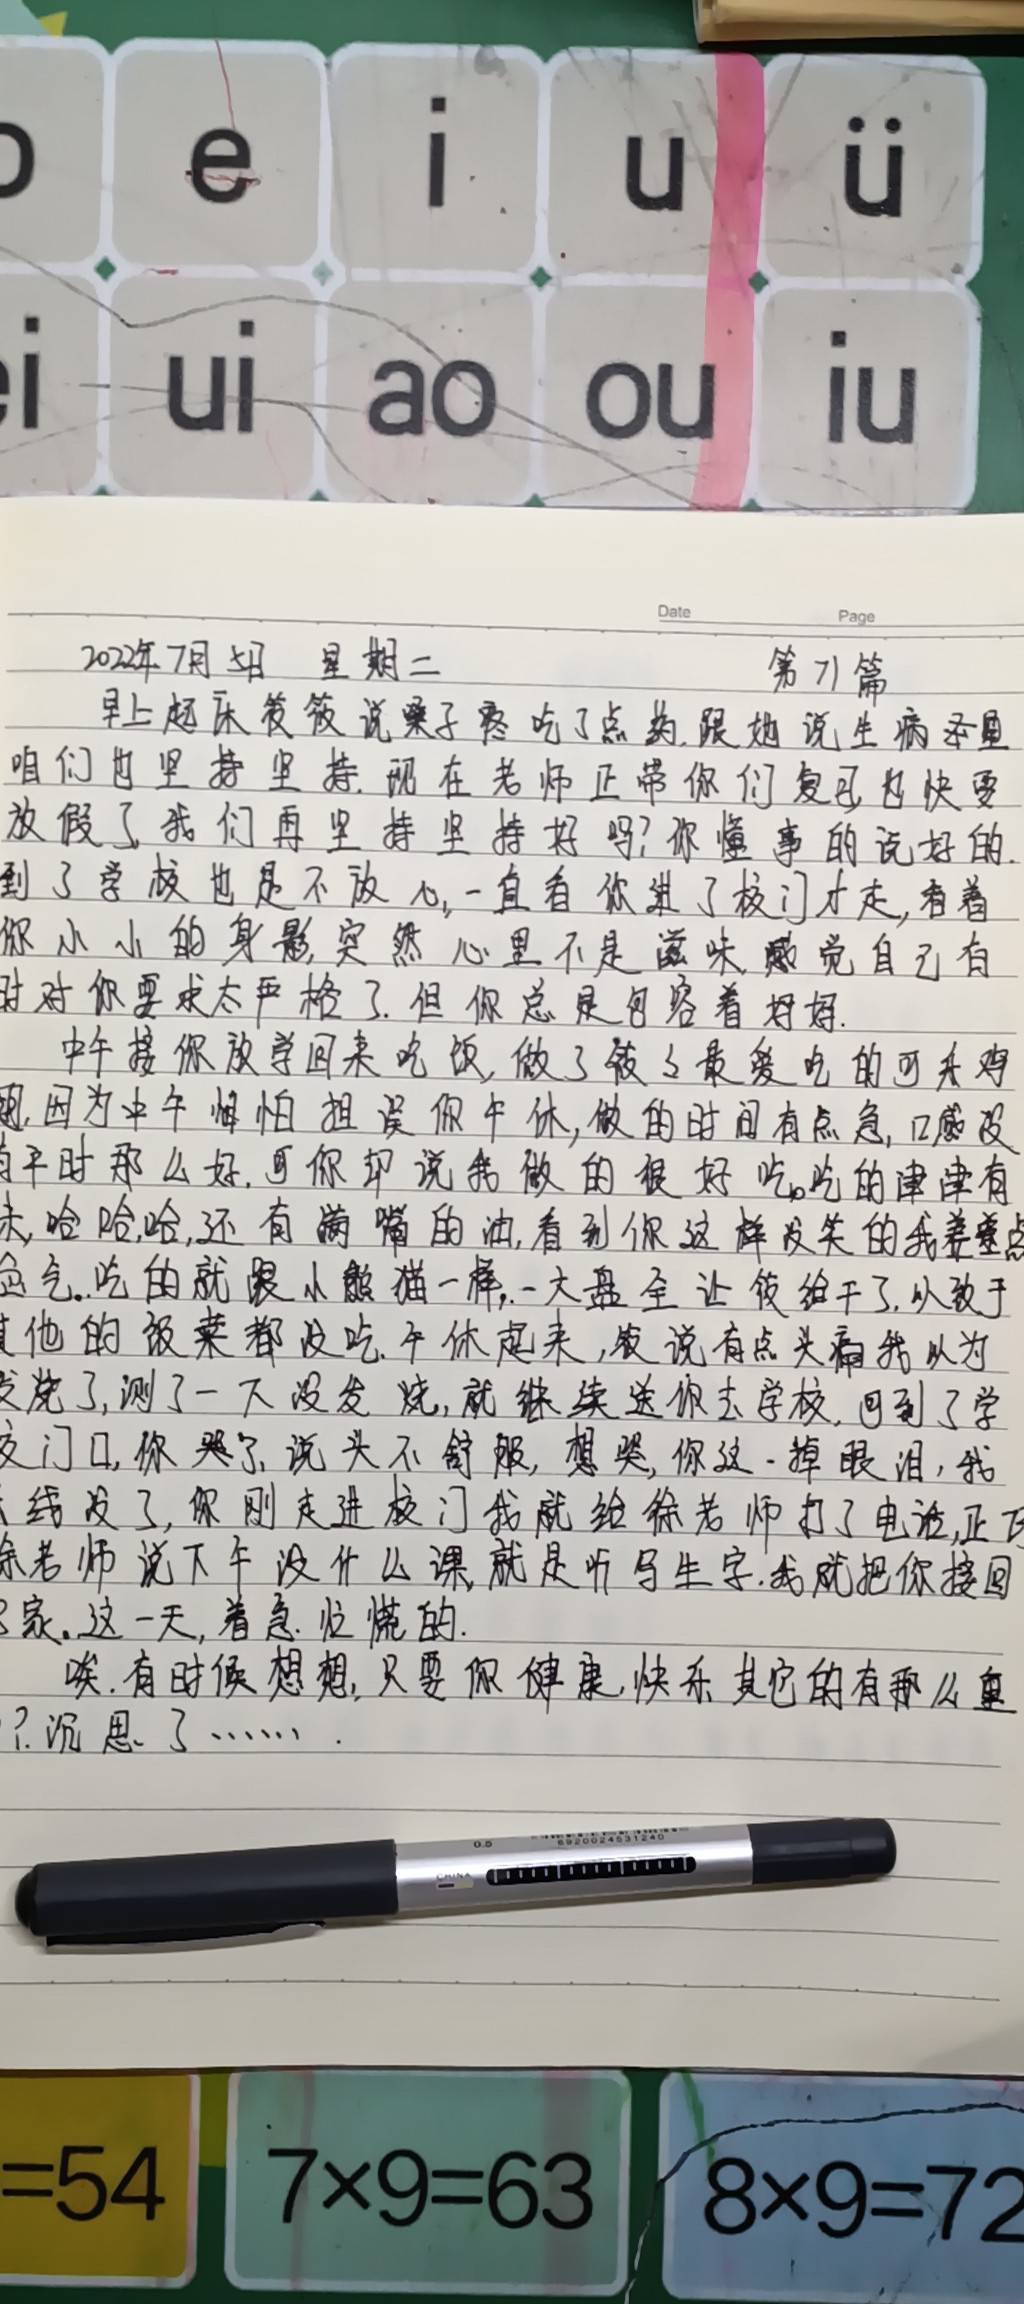 e i u ü
ui ao ou iu
Date Page
2022年7月5日 星期二 第71篇
早上起床筱筱说嗓子疼吃了点药.跟她说生病不重
咱们也坚持坚持.现在老师正带你们复习也快要
放假了,我们再坚持坚持好吗?你懂事的说好的.
到了学校也是不放心,一直看你进了校门才走,看着
你小小的身影,突然心里不是滋味,感觉自己有
时对你要求太严格了.但你总是包容着妈妈.
中午接你放学回来吃饭,做了筱々最爱吃的可乐鸡
翅,因为中午怕担误你午休,做的时间有点急,口感没
有平时那么好.可你却说我做的很好吃。吃的津津有
味,哈哈,哈,还有满嘴的油,看到你这样没笑的我差点
岔气..吃的就跟小熊猫一样,.一大盘全让筱给干了.以致于
其他的饭菜都没吃.午休起来,筱说有点头痛我以为
发烧了,测了一下没发烧,就继续送你去学校.回到了学
校门口,你哭了,说头不舒服,想哭,你这一掉眼泪,我
线没了,你刚走进校门我就给徐老师打了电话,正巧
徐老师说下午没什么课,就是听写生字.我就把你接回
了家。这一天,着急忙慌的.
唉.有时候想想,只要你健康,快乐其它的有那么重
?.沉思了…….
0.5
6920024531240
CHINA
=54 7×9=63 8×9=72